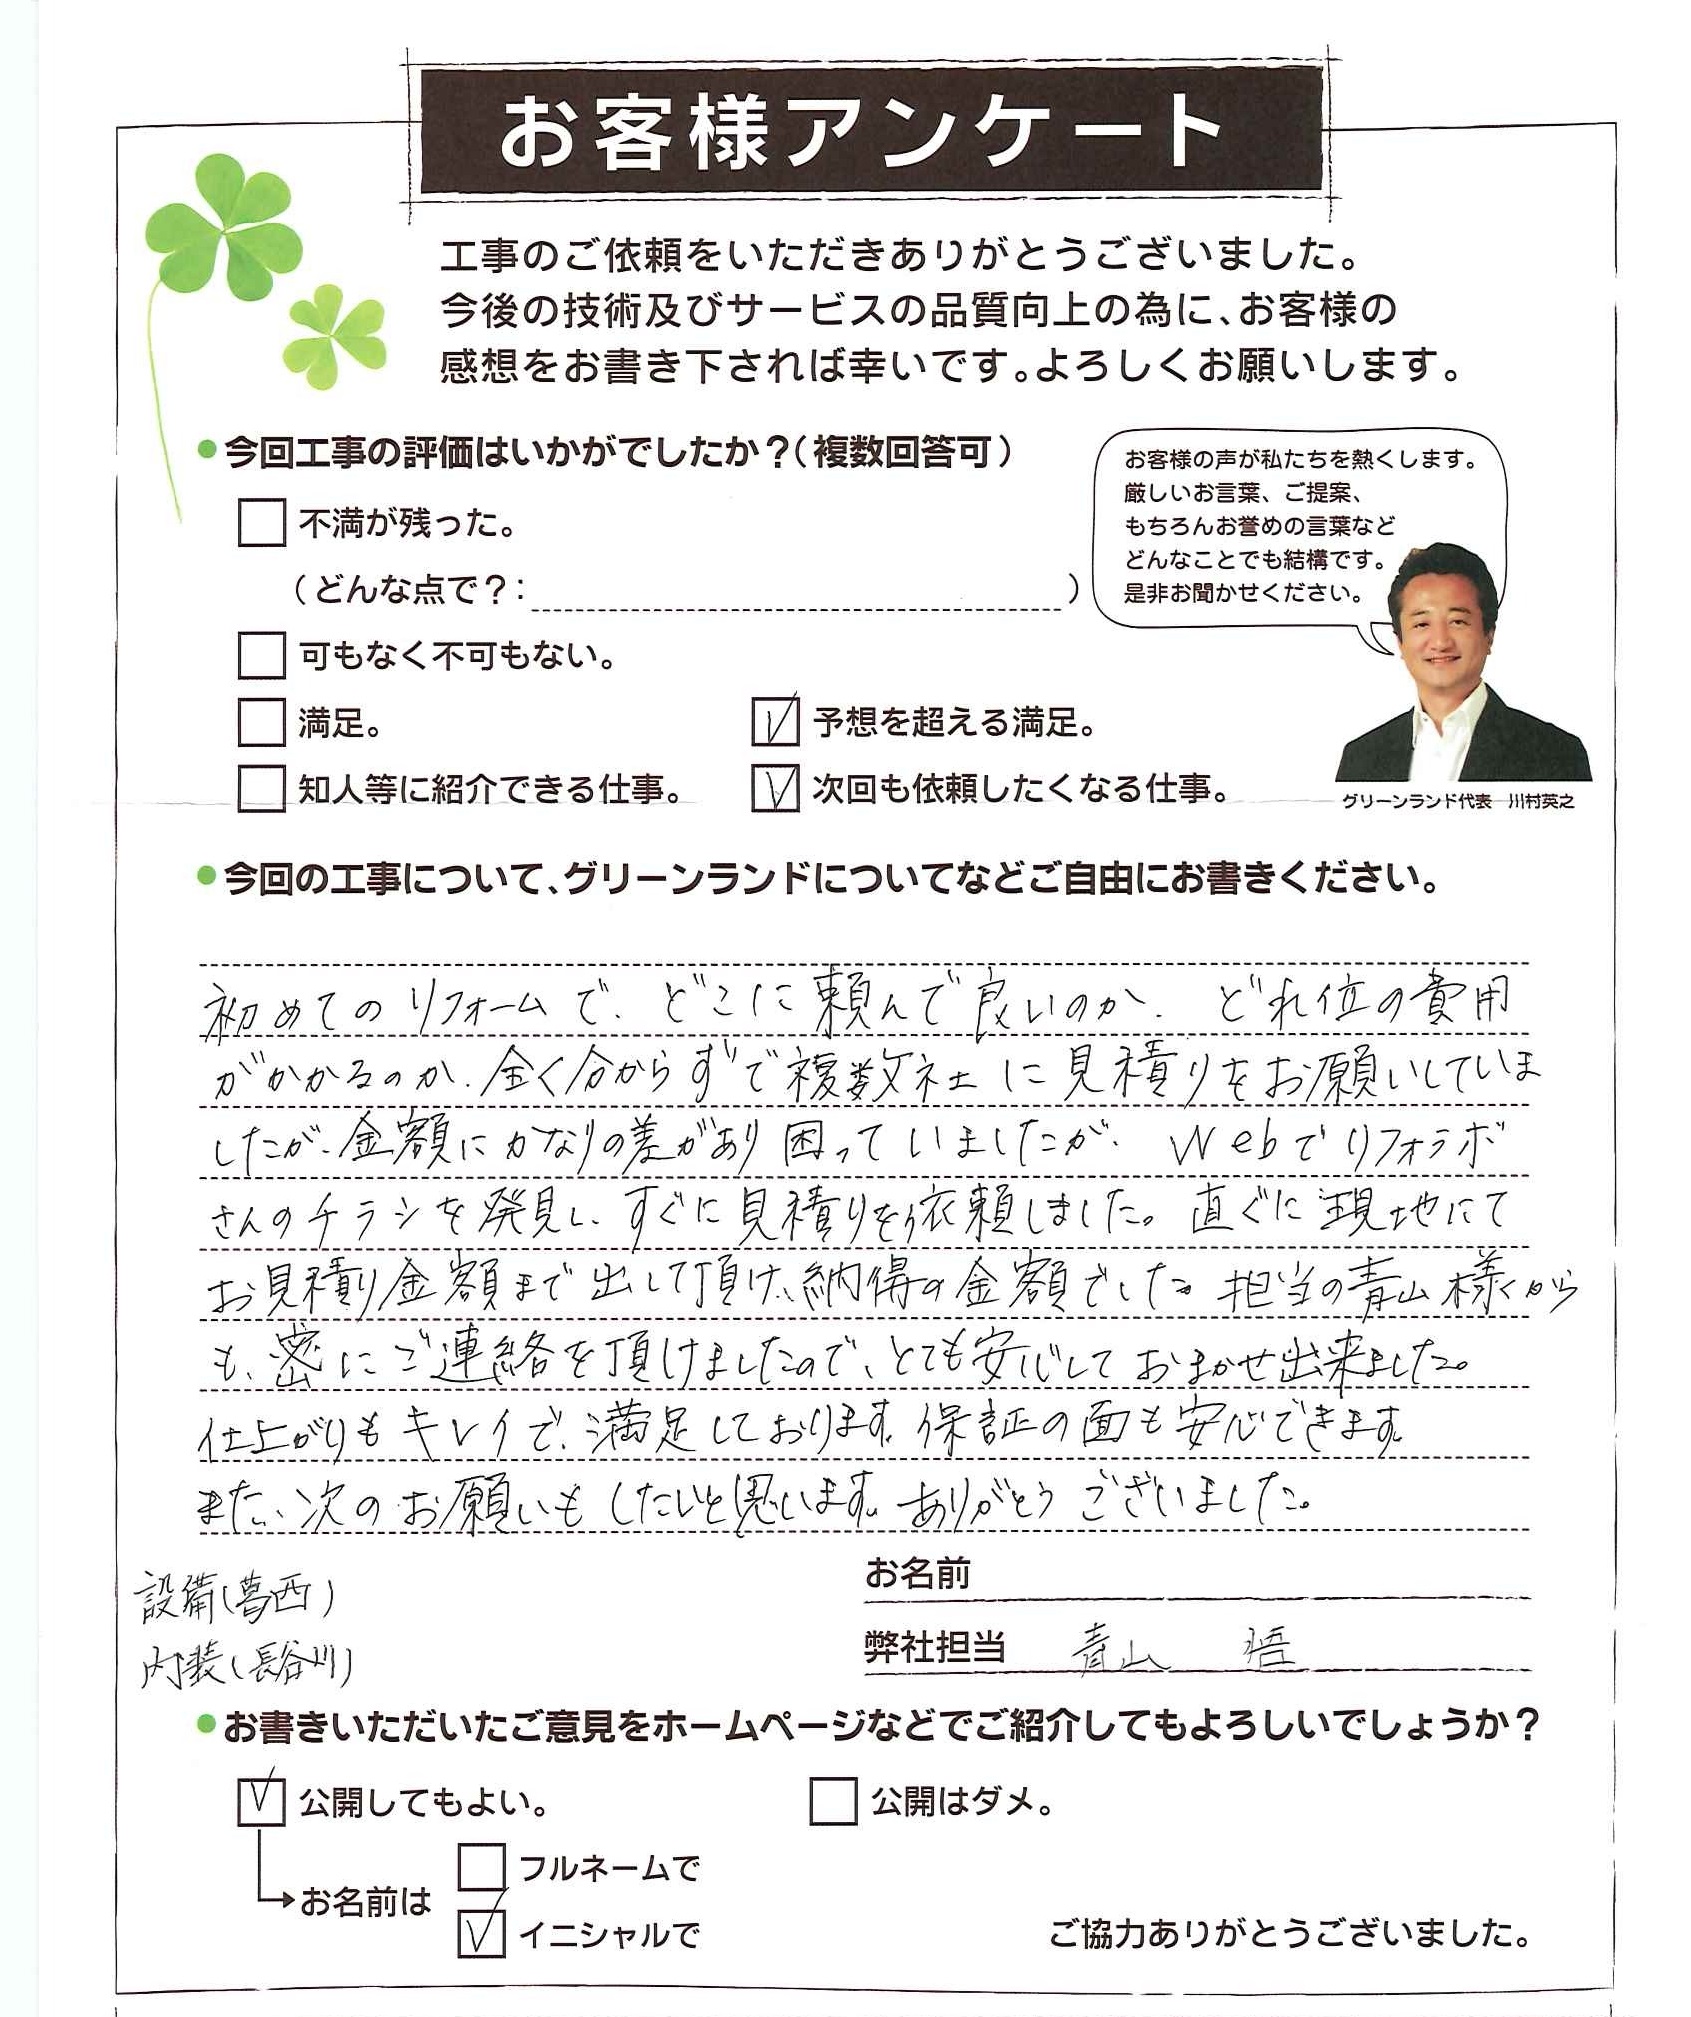 お客様アンケート
工事のご依頼をいただきありがとうございました。
今後の技術及びサービスの品質向上の為に、お客様の
感想をお書き下されば幸いです。よろしくお願いします。
●今回工事の評価はいかがでしたか？（複数回答可）
お客様の声が私たちを熱くします。
厳しいお言葉、ご提案、
もちろんお誉めの言葉など
どんなことでも結構です。
是非お聞かせください。
グリーンランド代表　川村英之
不満が残った。
（どんな点で？：　）
可もなく不可もない。
満足。　予想を超える満足。
知人等に紹介できる仕事。　次回も依頼したくなる仕事。
●今回の工事について、グリーンランドについてなどご自由にお書きください。
初めてのリフォームで、どこに頼んで良いのか、どれ位の費用
がかかるのか、全く分からずで複数社に見積りをお願いしていま
したが、金額にかなりの差があり困っていましたが、Webでリフォラボ
さんのチラシを発見し、すぐに見積りを依頼しました。直ぐに現地にて
お見積り金額まで出して頂け、納得の金額でした。担当の青山様から
も、密にご連絡を頂けましたので、とても安心しておまかせ出来ました。
仕上がりもキレイで、満足しております。保証の面も安心できます。
また、次のお願いもしたいと思います。ありがとうございました。
設備(葛西)
内装(長谷川)
お名前
弊社担当　青山　悟
●お書きいただいたご意見をホームページなどでご紹介してもよろしいでしょうか？
公開してもよい。　公開はダメ。
お名前は
フルネームで
イニシャルで
ご協力ありがとうございました。